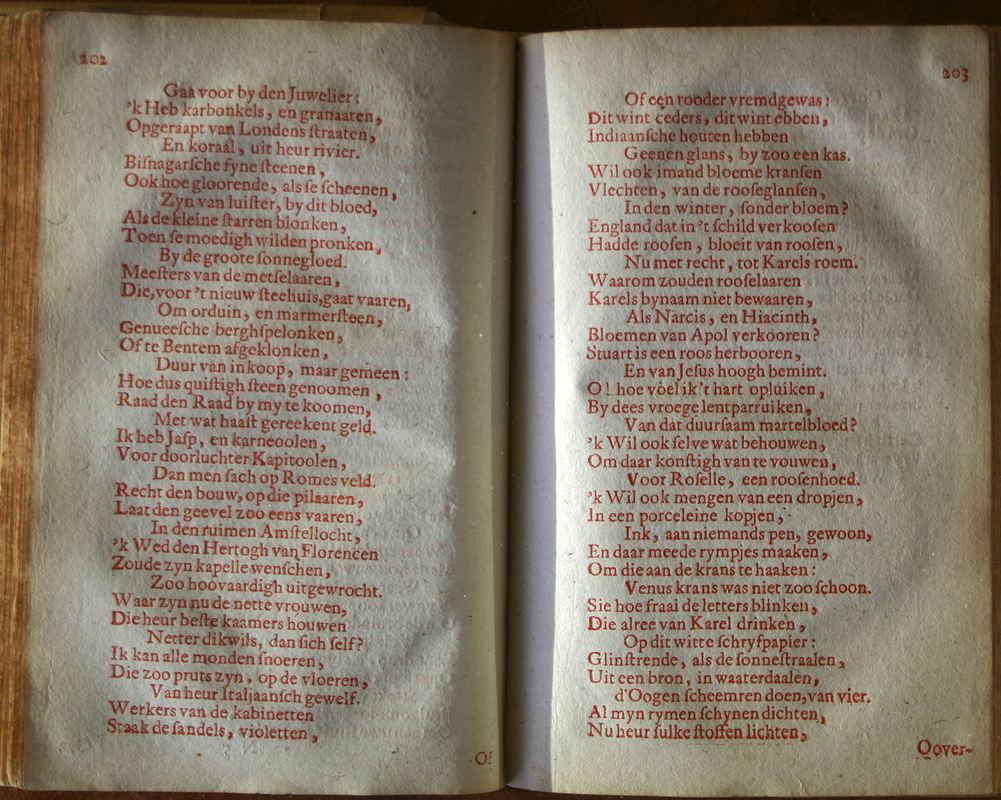 202
Gaa voor by den Juwelier:
'k Heb karbonkels, en granaaten,
Opgeraapt van Londens straaten,
En koraal, uit heur rivier.
Bisnagarsche fyne steenen,
Ook hoe gloorende, als se scheenen,
Zyn van luister, by dit bloed,
Als de kleine starren blonken,
Toen se moedigh wilden pronken,
By de groote sonnegloed.
Meesters van de metselaaren,
Die, voor 't nieuw steehuis, gaat vaaren,
Om orduin, en marmersteen,
Genueesche berghspelonken,
Of te Bentem afgeklonken,
Duur van inkoop, maar gemeen:
Hoe dus quistigh steen genoomen,
Raad den Raad by my te koomen,
Met wat haast gereekent geld.
Ik heb Jasp, en karneoolen,
Voor doorluchter Kapitoolen,
Dan men sach op Romes veld.
Recht den bouw, op die pilaaren,
Laat den geevel zoo eens vaaren,
In den ruimen Amstellocht,
'k Wed den Hertogh van Florencen
Zoude zyn kapelle wenschen,
Zoo hoovaardigh uitgewrocht.
Waar zyn nu de nette vrouwen,
Die heur beste kaamers houwen
Netter dikwils, dan sich self?
Ik kan alle monden snoeren,
Die zoo pruts zyn, op de vloeren,
Van heur Italjaansch gewelf.
Werkers van de kabinetten
Staak de sandels, violetten,
Of
203
Of een rooder vremdgewas:
Dit wint ceders, dit wint ebben,
Indiaansche houten hebben
Geenen glans, by zoo een kas.
Wil ook imand bloeme kransen
Vlechten, van de rooseglansen,
In den winter, sonder bloem?
England dat in 't schild verkoosen
Hadde roosen, bloeit van roosen,
Nu met recht, tot Karels roem.
Waarom zouden rooselaaren
Karels bynaam niet bewaaren,
Als Narcis, en Hiacinth,
Bloemen van Apol verkooren?
Stuart is een roos herbooren,
En van Jesus hoogh bemint.
O! hoe voel ik 't hart opluiken,
By dees vroege lentparruiken,
Van dat duursaam martelbloed?
'k Wil ook selve wat behouwen,
Om daar konstigh van te vouwen,
Voor Roselle, een roosenhoed.
'k Wil ook mengen van een dropjen,
In een porceleine kopjen,
Ink, aan niemands pen, gewoon,
En daar meede rympjes maaken,
Om die aan de krans te haaken:
Venus krans was niet zoo schoon.
Sie hoe fraai de letters blinken,
Die alree van Karel drinken,
Op dit witte schryfpapier:
Glinstrende, als de sonnestraalen,
Uit een bron, in waaterdaalen,
d'Oogen scheemren doen, van vier.
Al myn rymen schynen dichten,
Nu heur sulke stoffen lichten,
Qover-